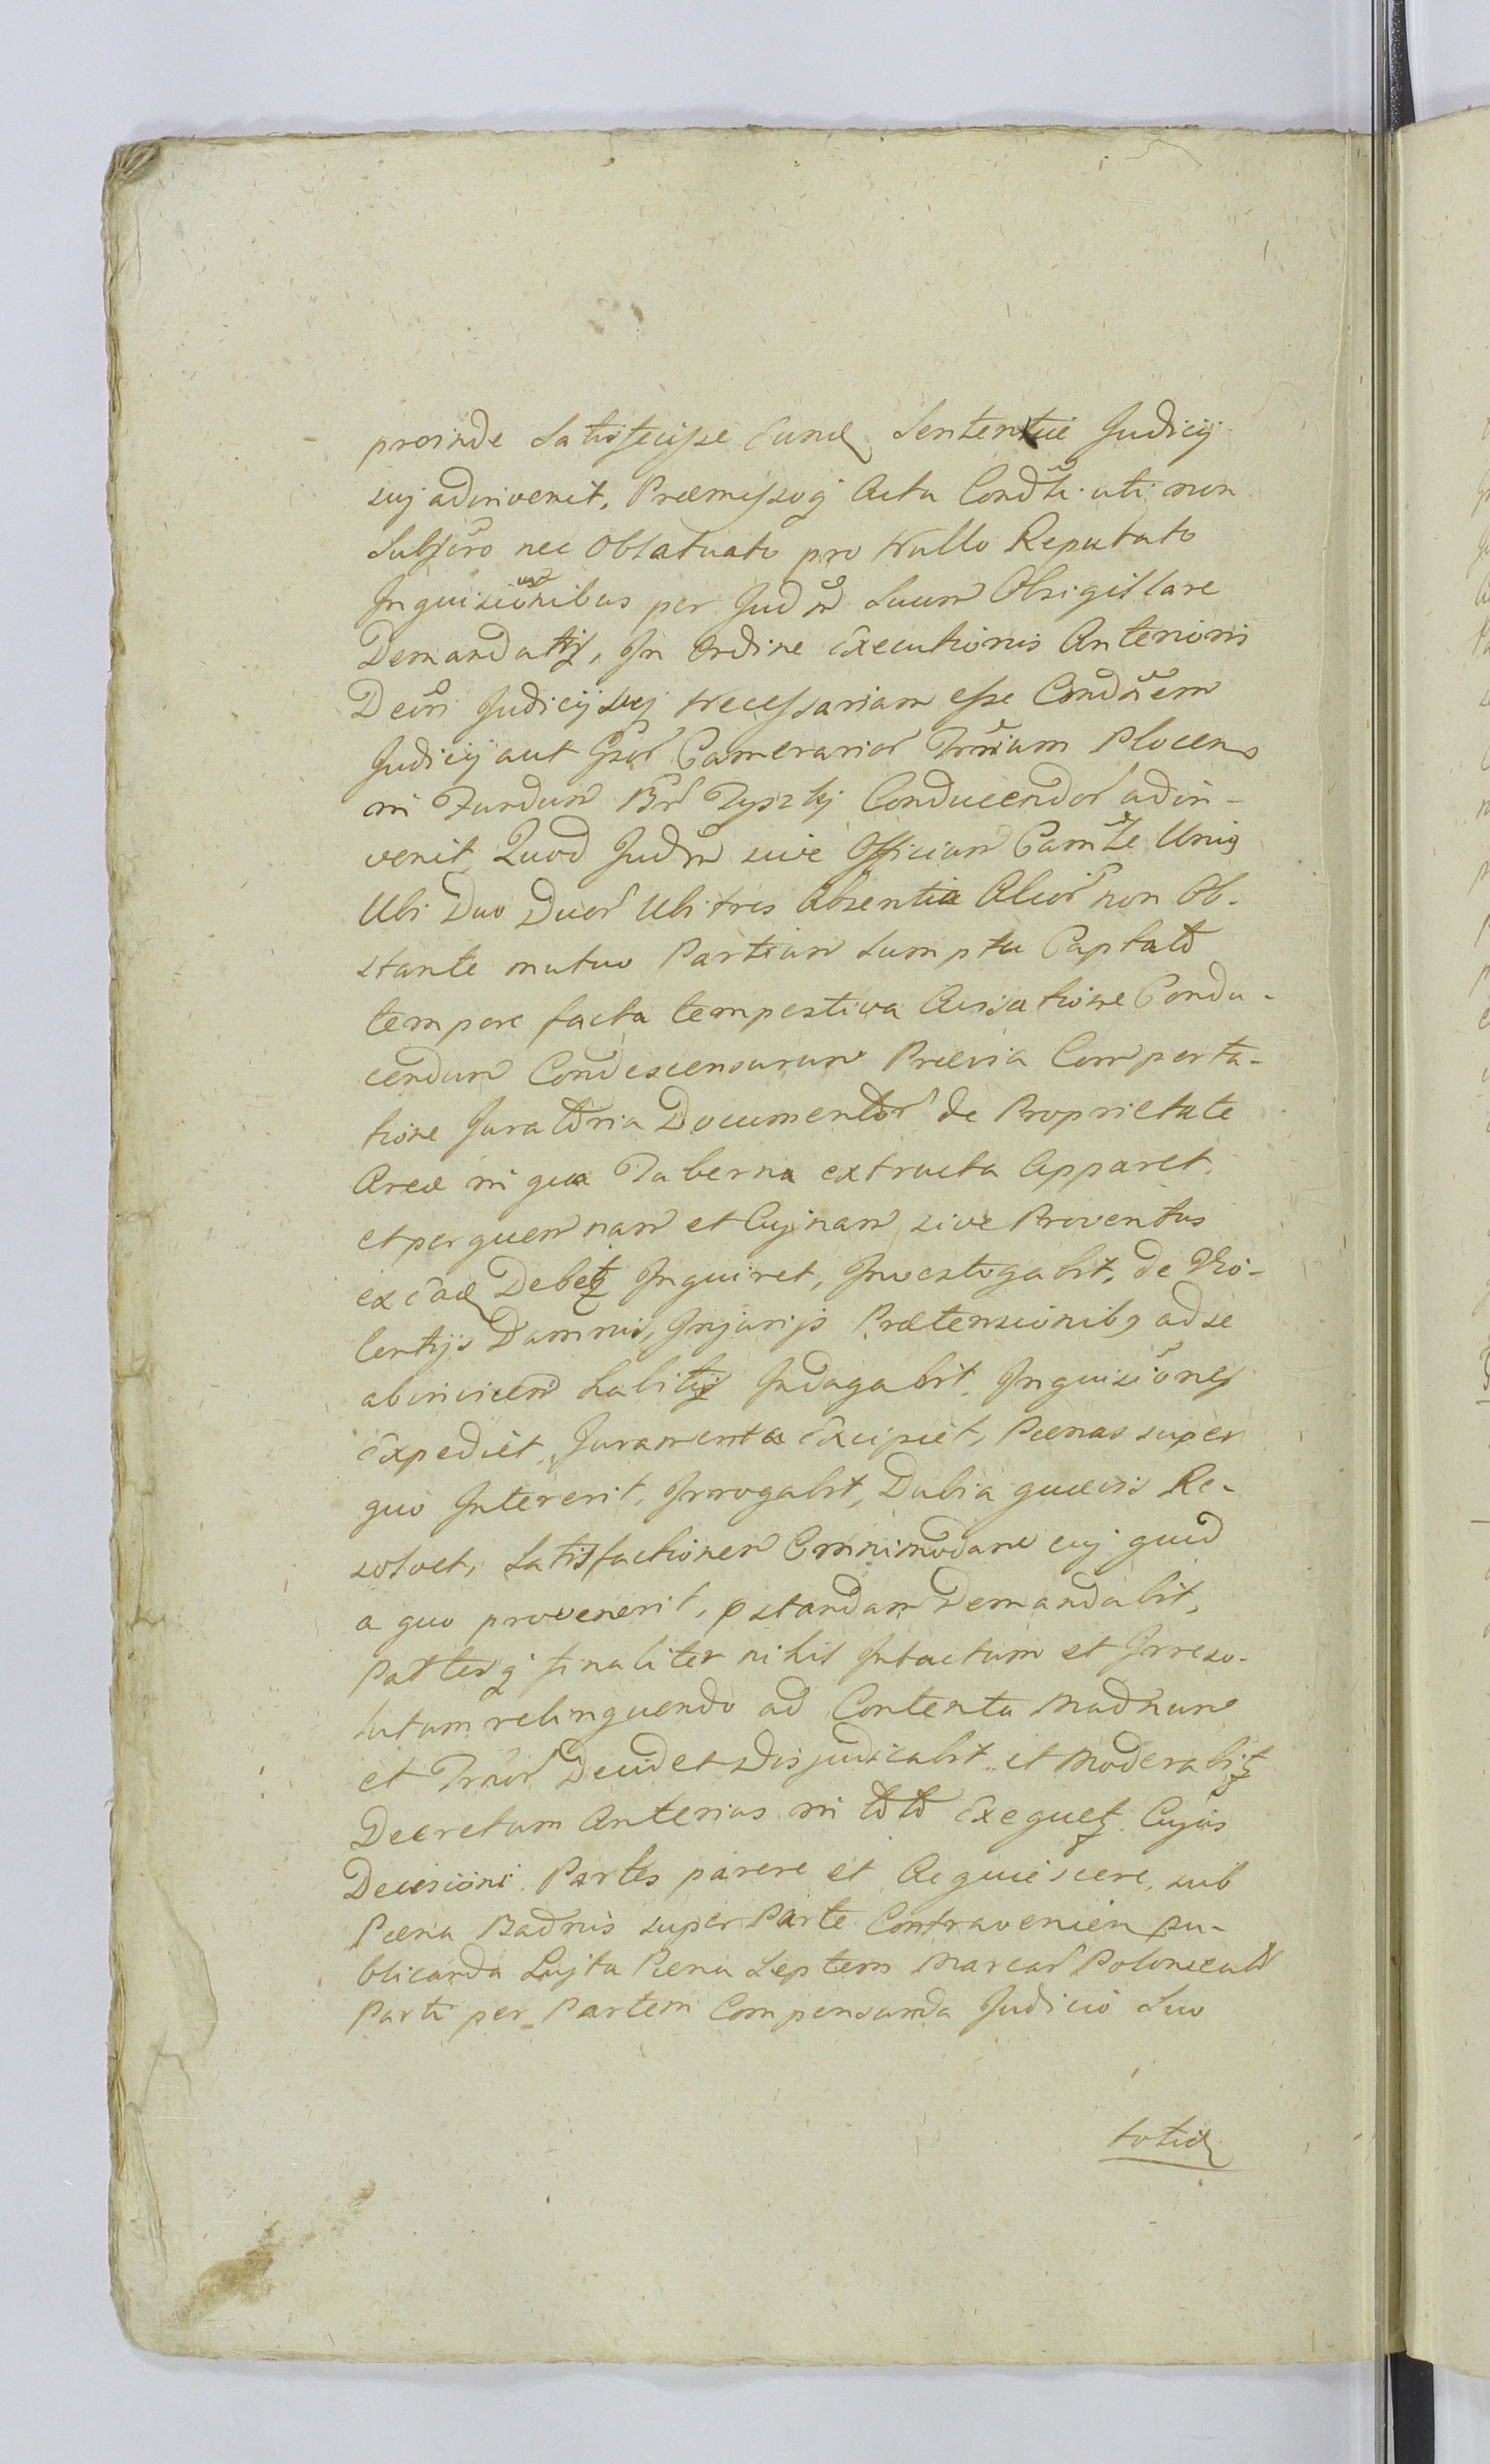 proinde Satisfecisse Eund Sententiæ Judicij
suj adinvenit, Præmissoq Actu Condsti uti non
Subscro nec Oblatuato pro Nullo Reputato
Inquisionibus per Judm Suum Obsigillare
Demandatis, In Ordine Executionis Anterioris
Decri Judicij suj Necessariam esse Condsem
Judicij aut Gsor Camerarior Trrium Plocens
in Fundum Br Tyszkj Conducendor adin-
venit Quod Judm sive Officium Camrle Unig
Ubi Duo Duor Ubi tres Absentia Alior non Ob-
stante mutuo Partium Sumptu Captato
tempore facta tempestiva Avisatione Condu-
cendum Condescensurum Prævia Comporta-
tione Juratoria Documentor de Proprietate
Areæ in qua Taberna extructa Apparet,
et per quem nam et Cujnam sive Proventus
ex Ead Debet Inquiret, Investigabit, de Vio-
lentijs Damnis, Injurijs Prætensionibq ad se
abinvicem habitis Indagabit, Inquisiones
Expediet, Juramenta Excipiet, Pænas super
quo Intererit, Irrogabit, Dubia quævis Re-
solvet, Satisfactionem Omnimodam cuj quid
a quo provenerit, pstandam Demandabit,
Partesq finaliter nihil Intactum et Irreso-
lutum relinquendo ad Contenta Madnum
et Trrior Decidet Disjudicabit et Moderabit
Decretum Anterius in toto Exequet Cujus
Decisioni Partes parere et Acquiescere, sub
Pæna Badnis super Parte Contravenien pu-
blicanda Lujta Pæna Septem Marcar Polonical
Parti per Partem Compensanda Judicio Suo
totid